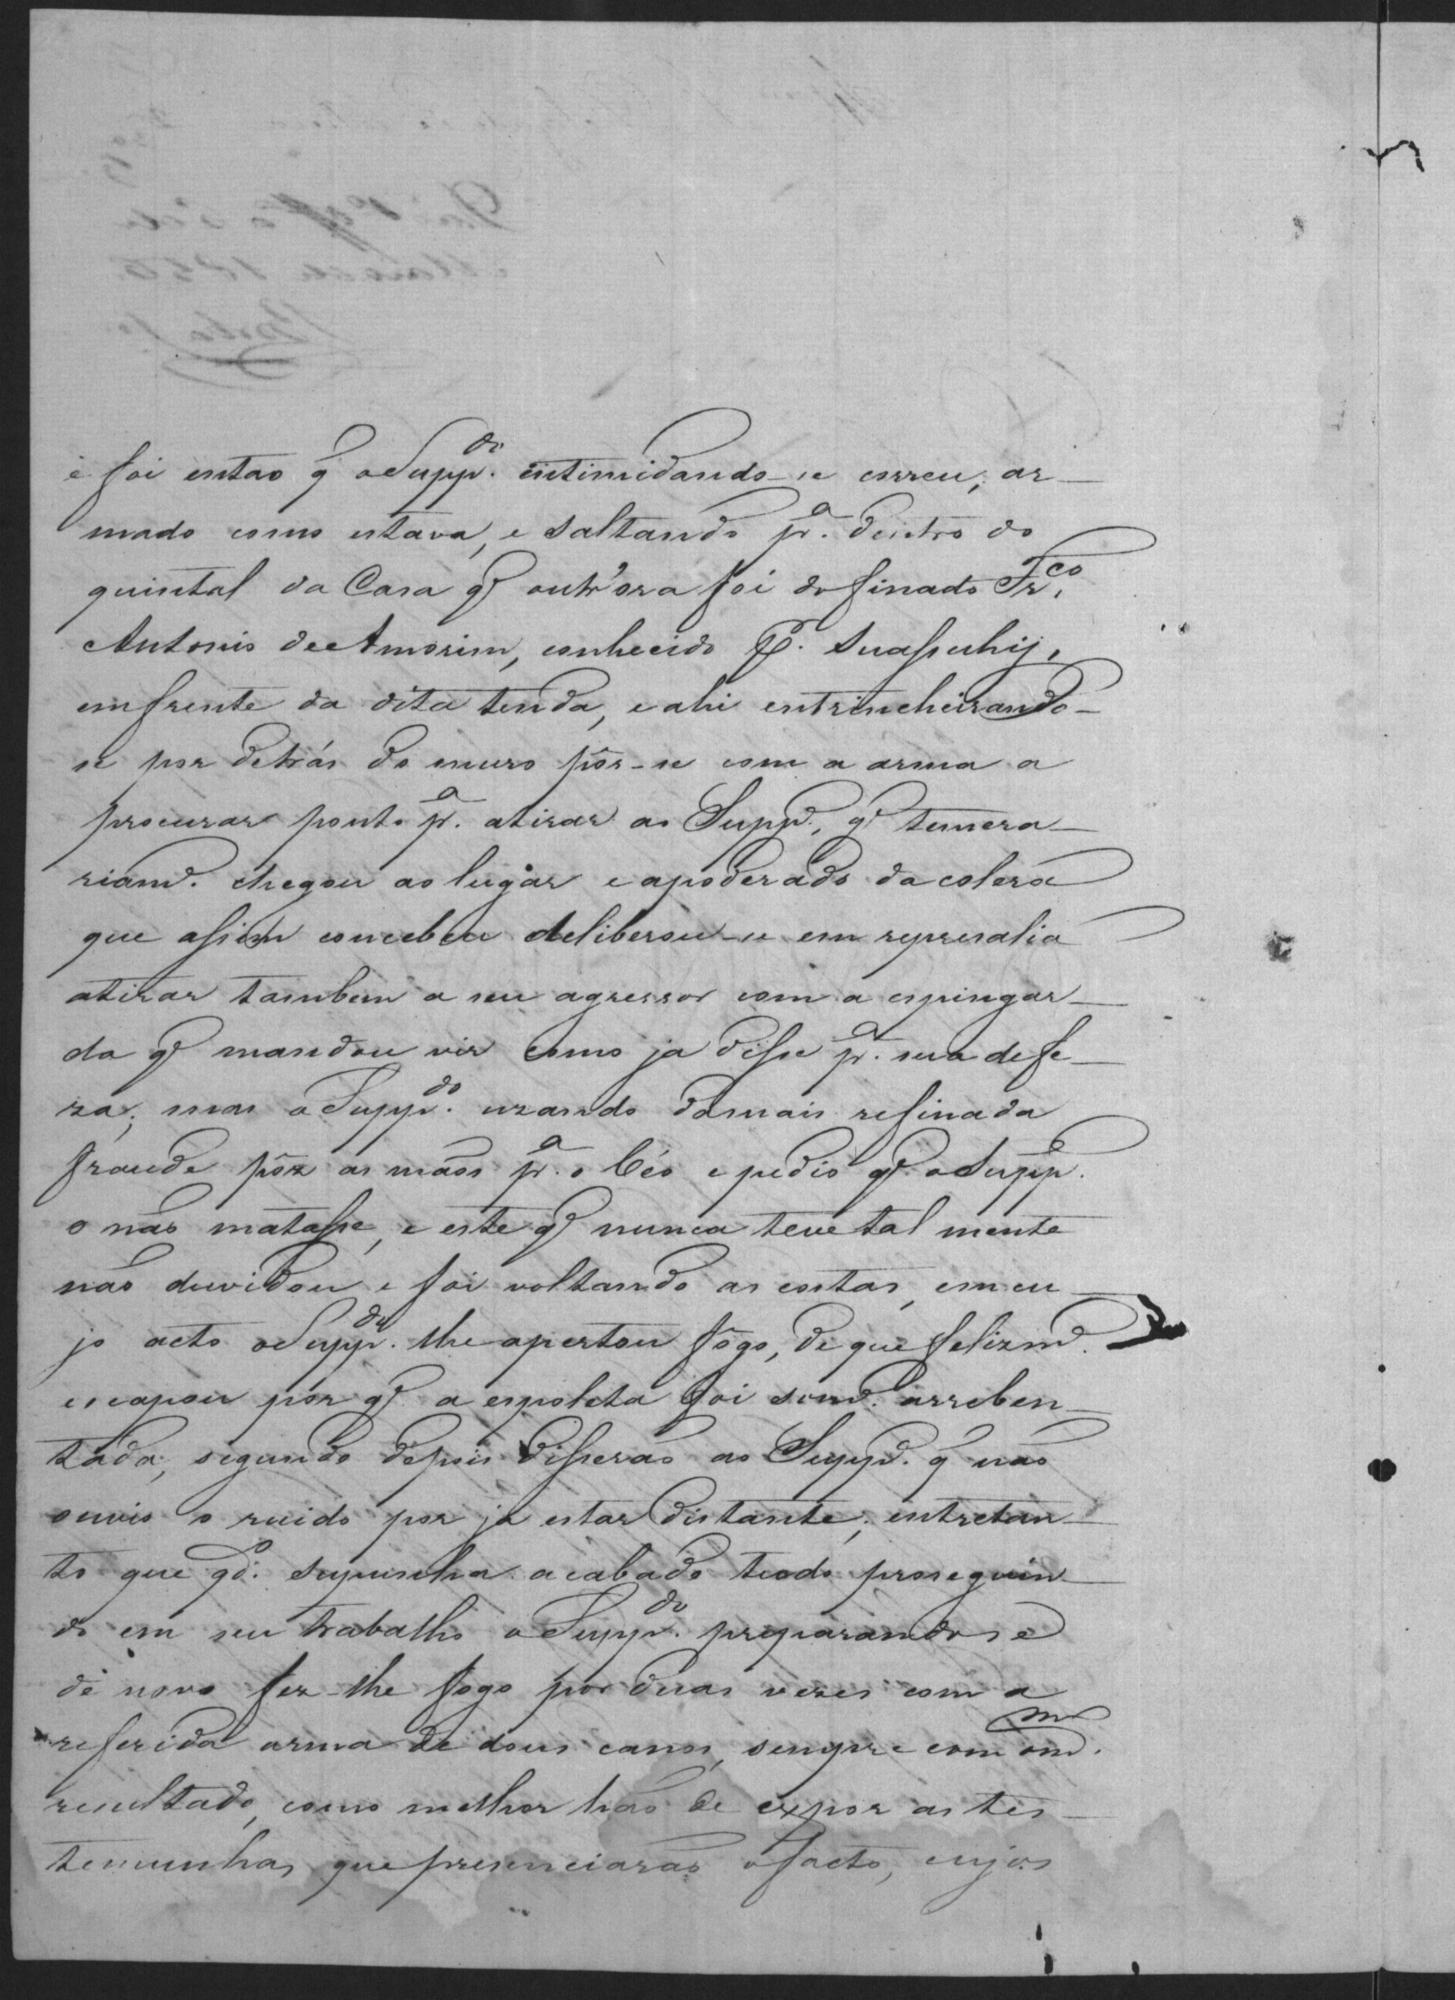 e foi entao q̃ o Supp.do intimidando-se correu, ar-
mado como estava, e saltando p.a dentro do
quintal da Casa q̃ outr'ora foi do finado Fr.co
Antonio de Amorim, conhecido p.r Suassuhy,
em frente da dita tenda, e ahi entrincheirando-
se por detrás do muro pôs-se com a arma a
procurar ponto p.a atirar ao Supp.e, q̃ temera-
riam.e chegou ao lugar e apoderado da colera
que assim concebeu deliberou-se em represalia
atirar tambem a seu agressor com a espingar-
da q̃ mandou vir como ja disse p.a sua defe-
za; mas o Supp.do uzando da mais refinada
fraude pôz as mãos p.a o Céo e pedio q̃ o Supp.e
o não matasse, e este q̃ nunca teve tal mente
não duvidou e foi voltando as costas, em cu-
jo acto o Supp.do lhe apertou fôgo, de que felizm.e
escapou por q̃ a espoleta foi som.e arreben-
tada, segundo depois disserão ao Supp.e q̃ não
ouvio o ruido por ja estar distante; entretan-
to que q.do supunha acabado tudo proseguin-
do em seu trabalho o Supp.do preparando-se
de novo fez-lhe fogo por duas vezes com a
referida arma de dous canos, sempre com o m.mo
resultado, como melhor hão de expor as tes-
temunhas que presenciarão o facto, cujos